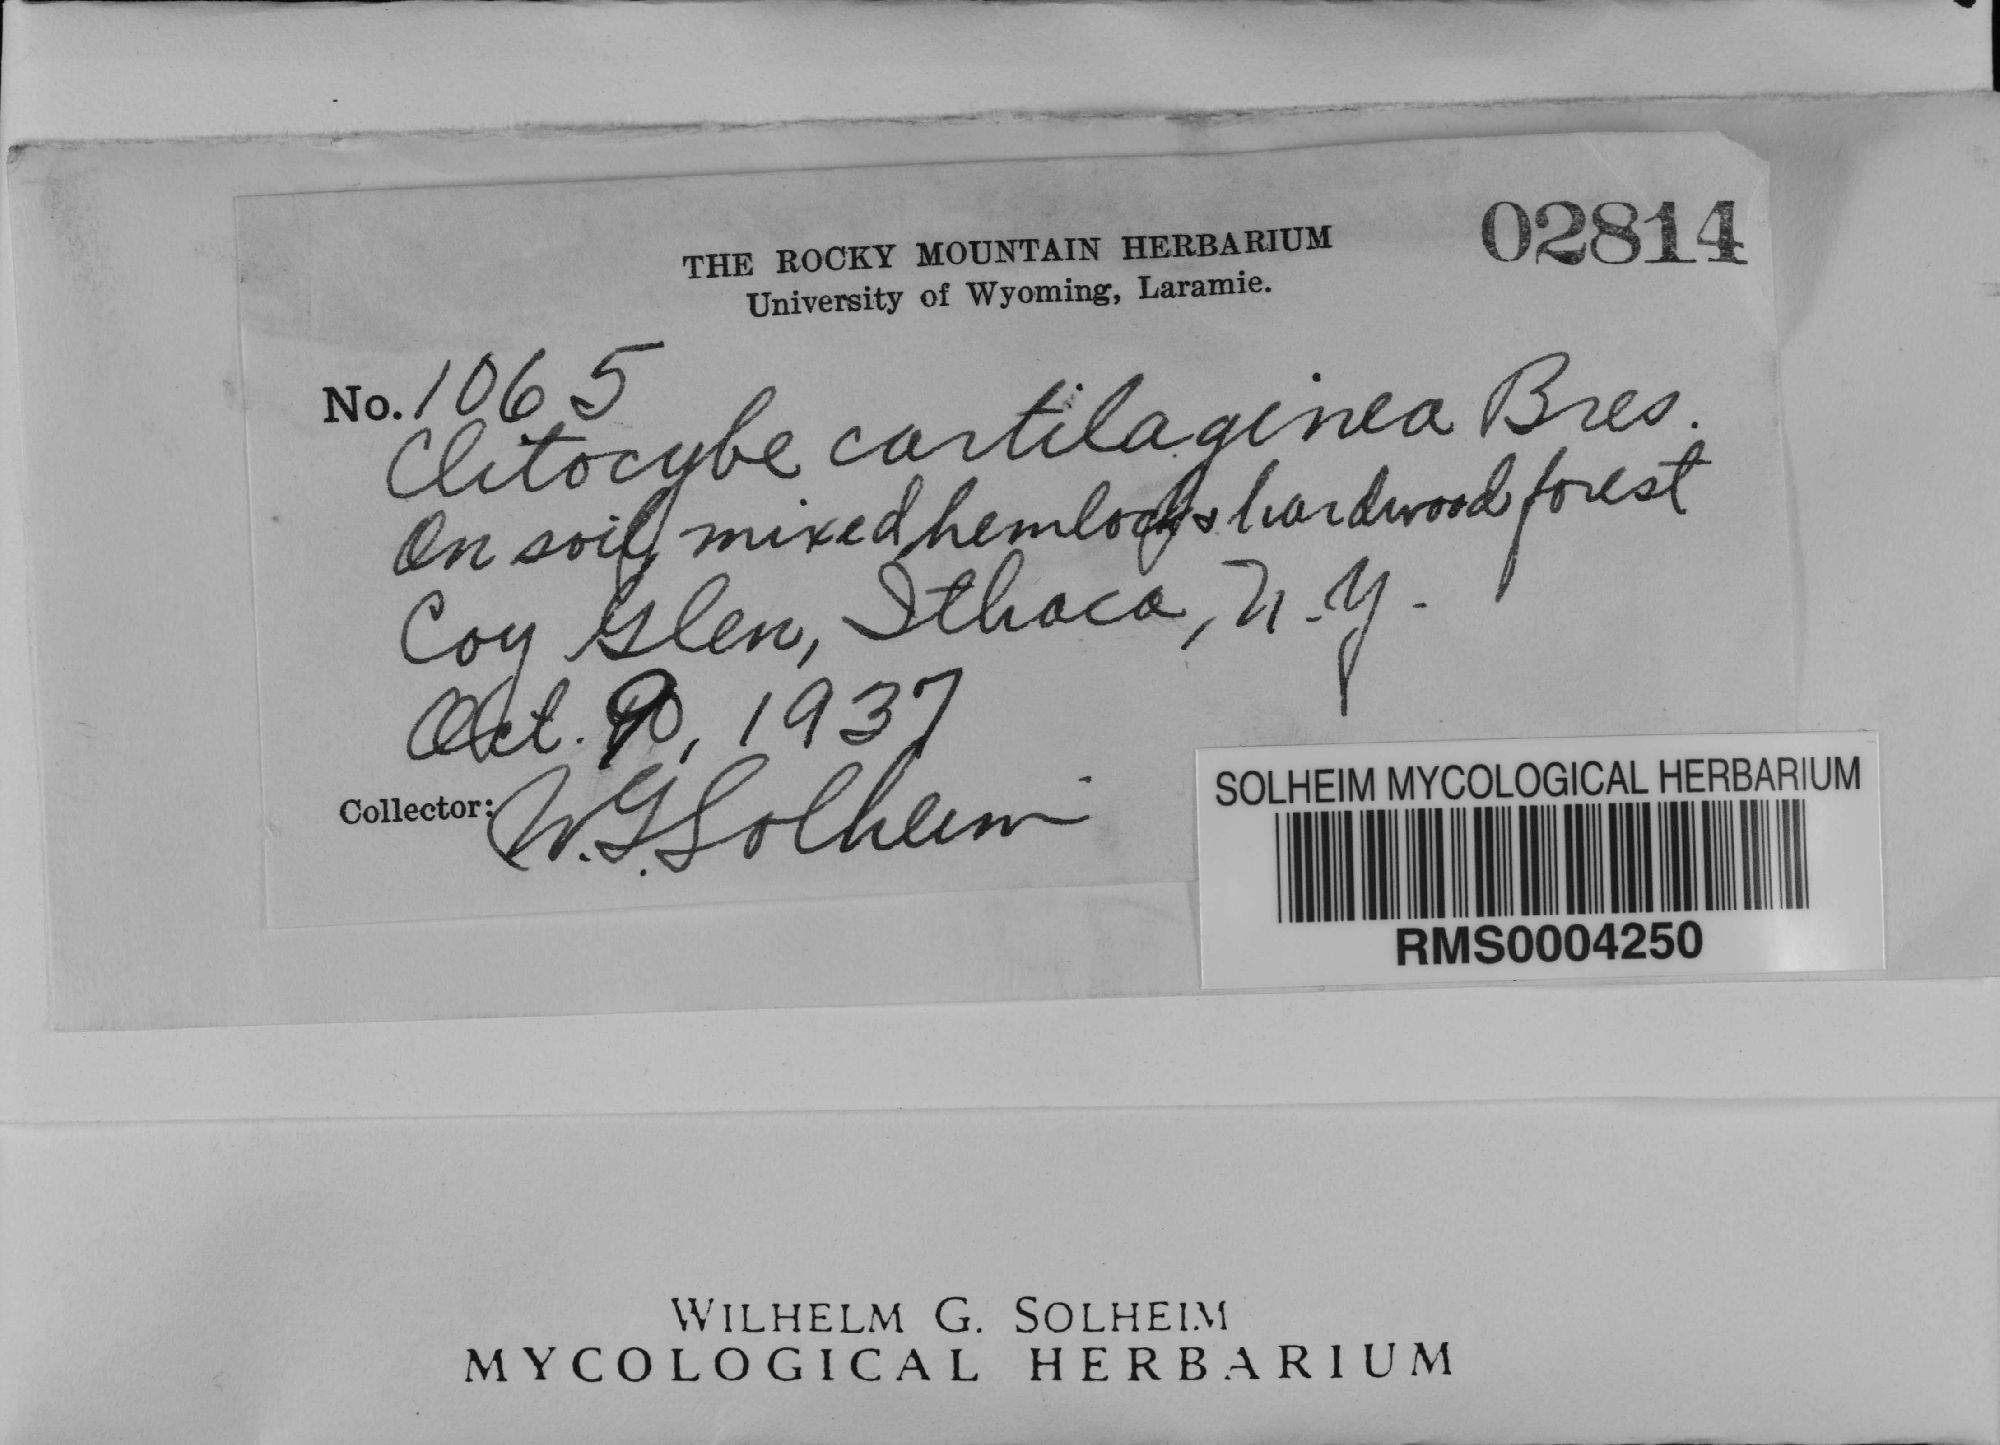 02814
THE ROCKY MOUNTAIN HERBARIUM
University of Wyoming, Laramie.
No. 1065
Clitocybe cartilaginea Bres.
On soil, mixed hemlock & hardwood forest
Coy Glen, Ithaca, N.Y.
Oct. , 1937
Collector: W.G. Solheim
SOLHEIM MYCOLOGICAL HERBARIUM
RMS0004250
WILHELM G. SOLHEIM
MYCOLOGICAL HERBARIUM